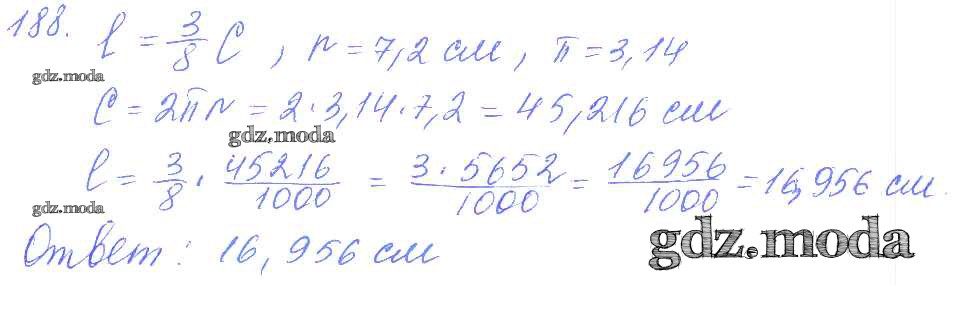 188. l = 3/8 C, r = 7,2 см, π = 3,14
gdz.moda
C = 2πr = 2 · 3,14 · 7,2 = 45,216 см
gdz.moda
l = 3/8 · 45216/1000 = 3 · 5652/1000 = 16956/1000 = 16,956 см.
gdz.moda
Ответ: 16,956 см
gdz.moda